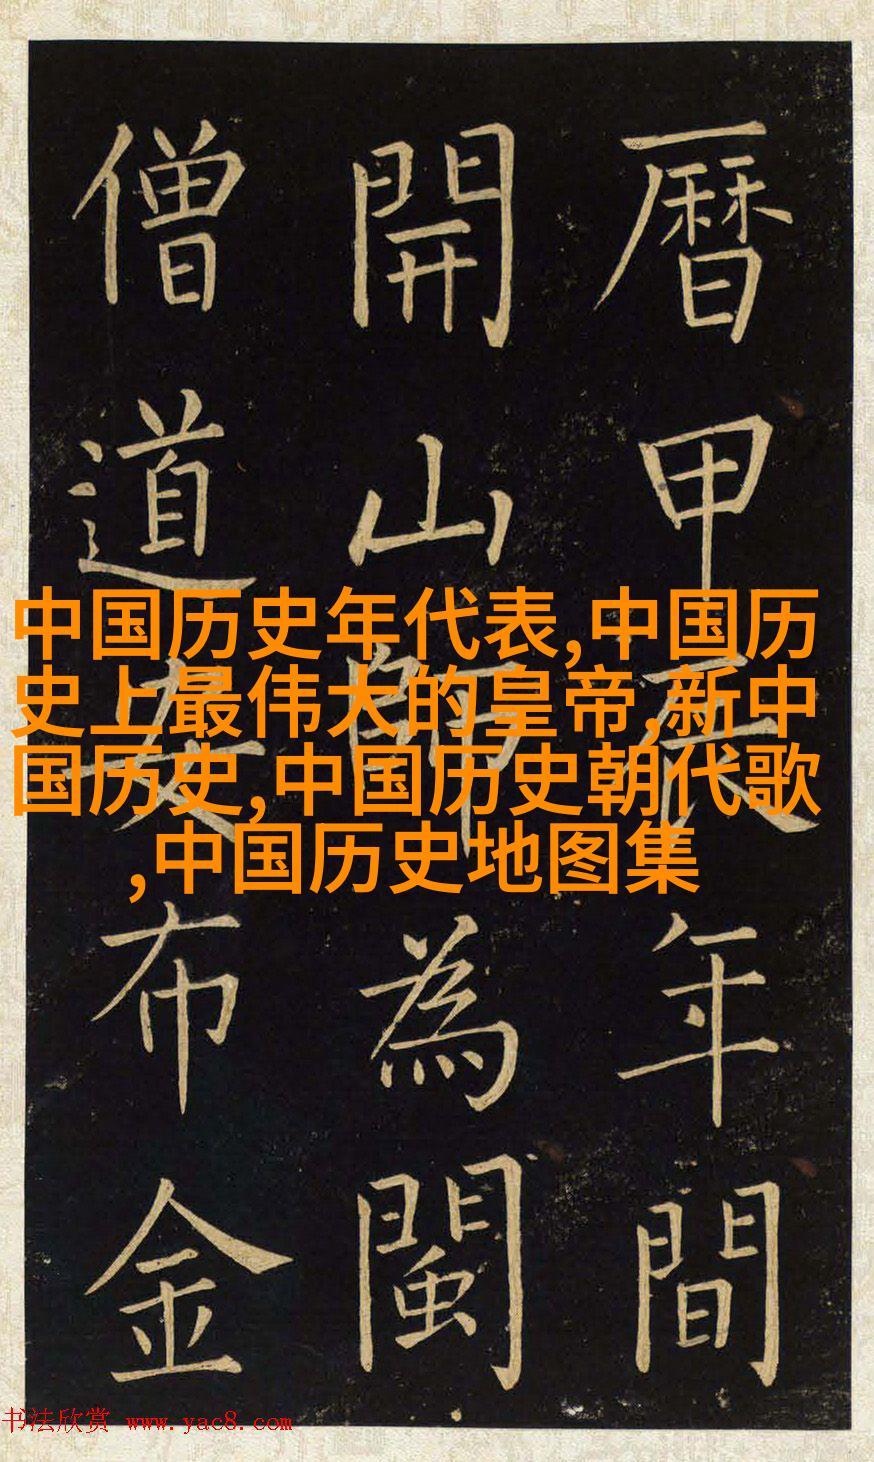 曆甲辰年間
開山師為閩
僧道安布金
中国历史年代表,中国历
史上最伟大的皇帝,新中
国历史,中国历史朝代歌
,中国历史地图集
书法欣赏 www.yac8.com